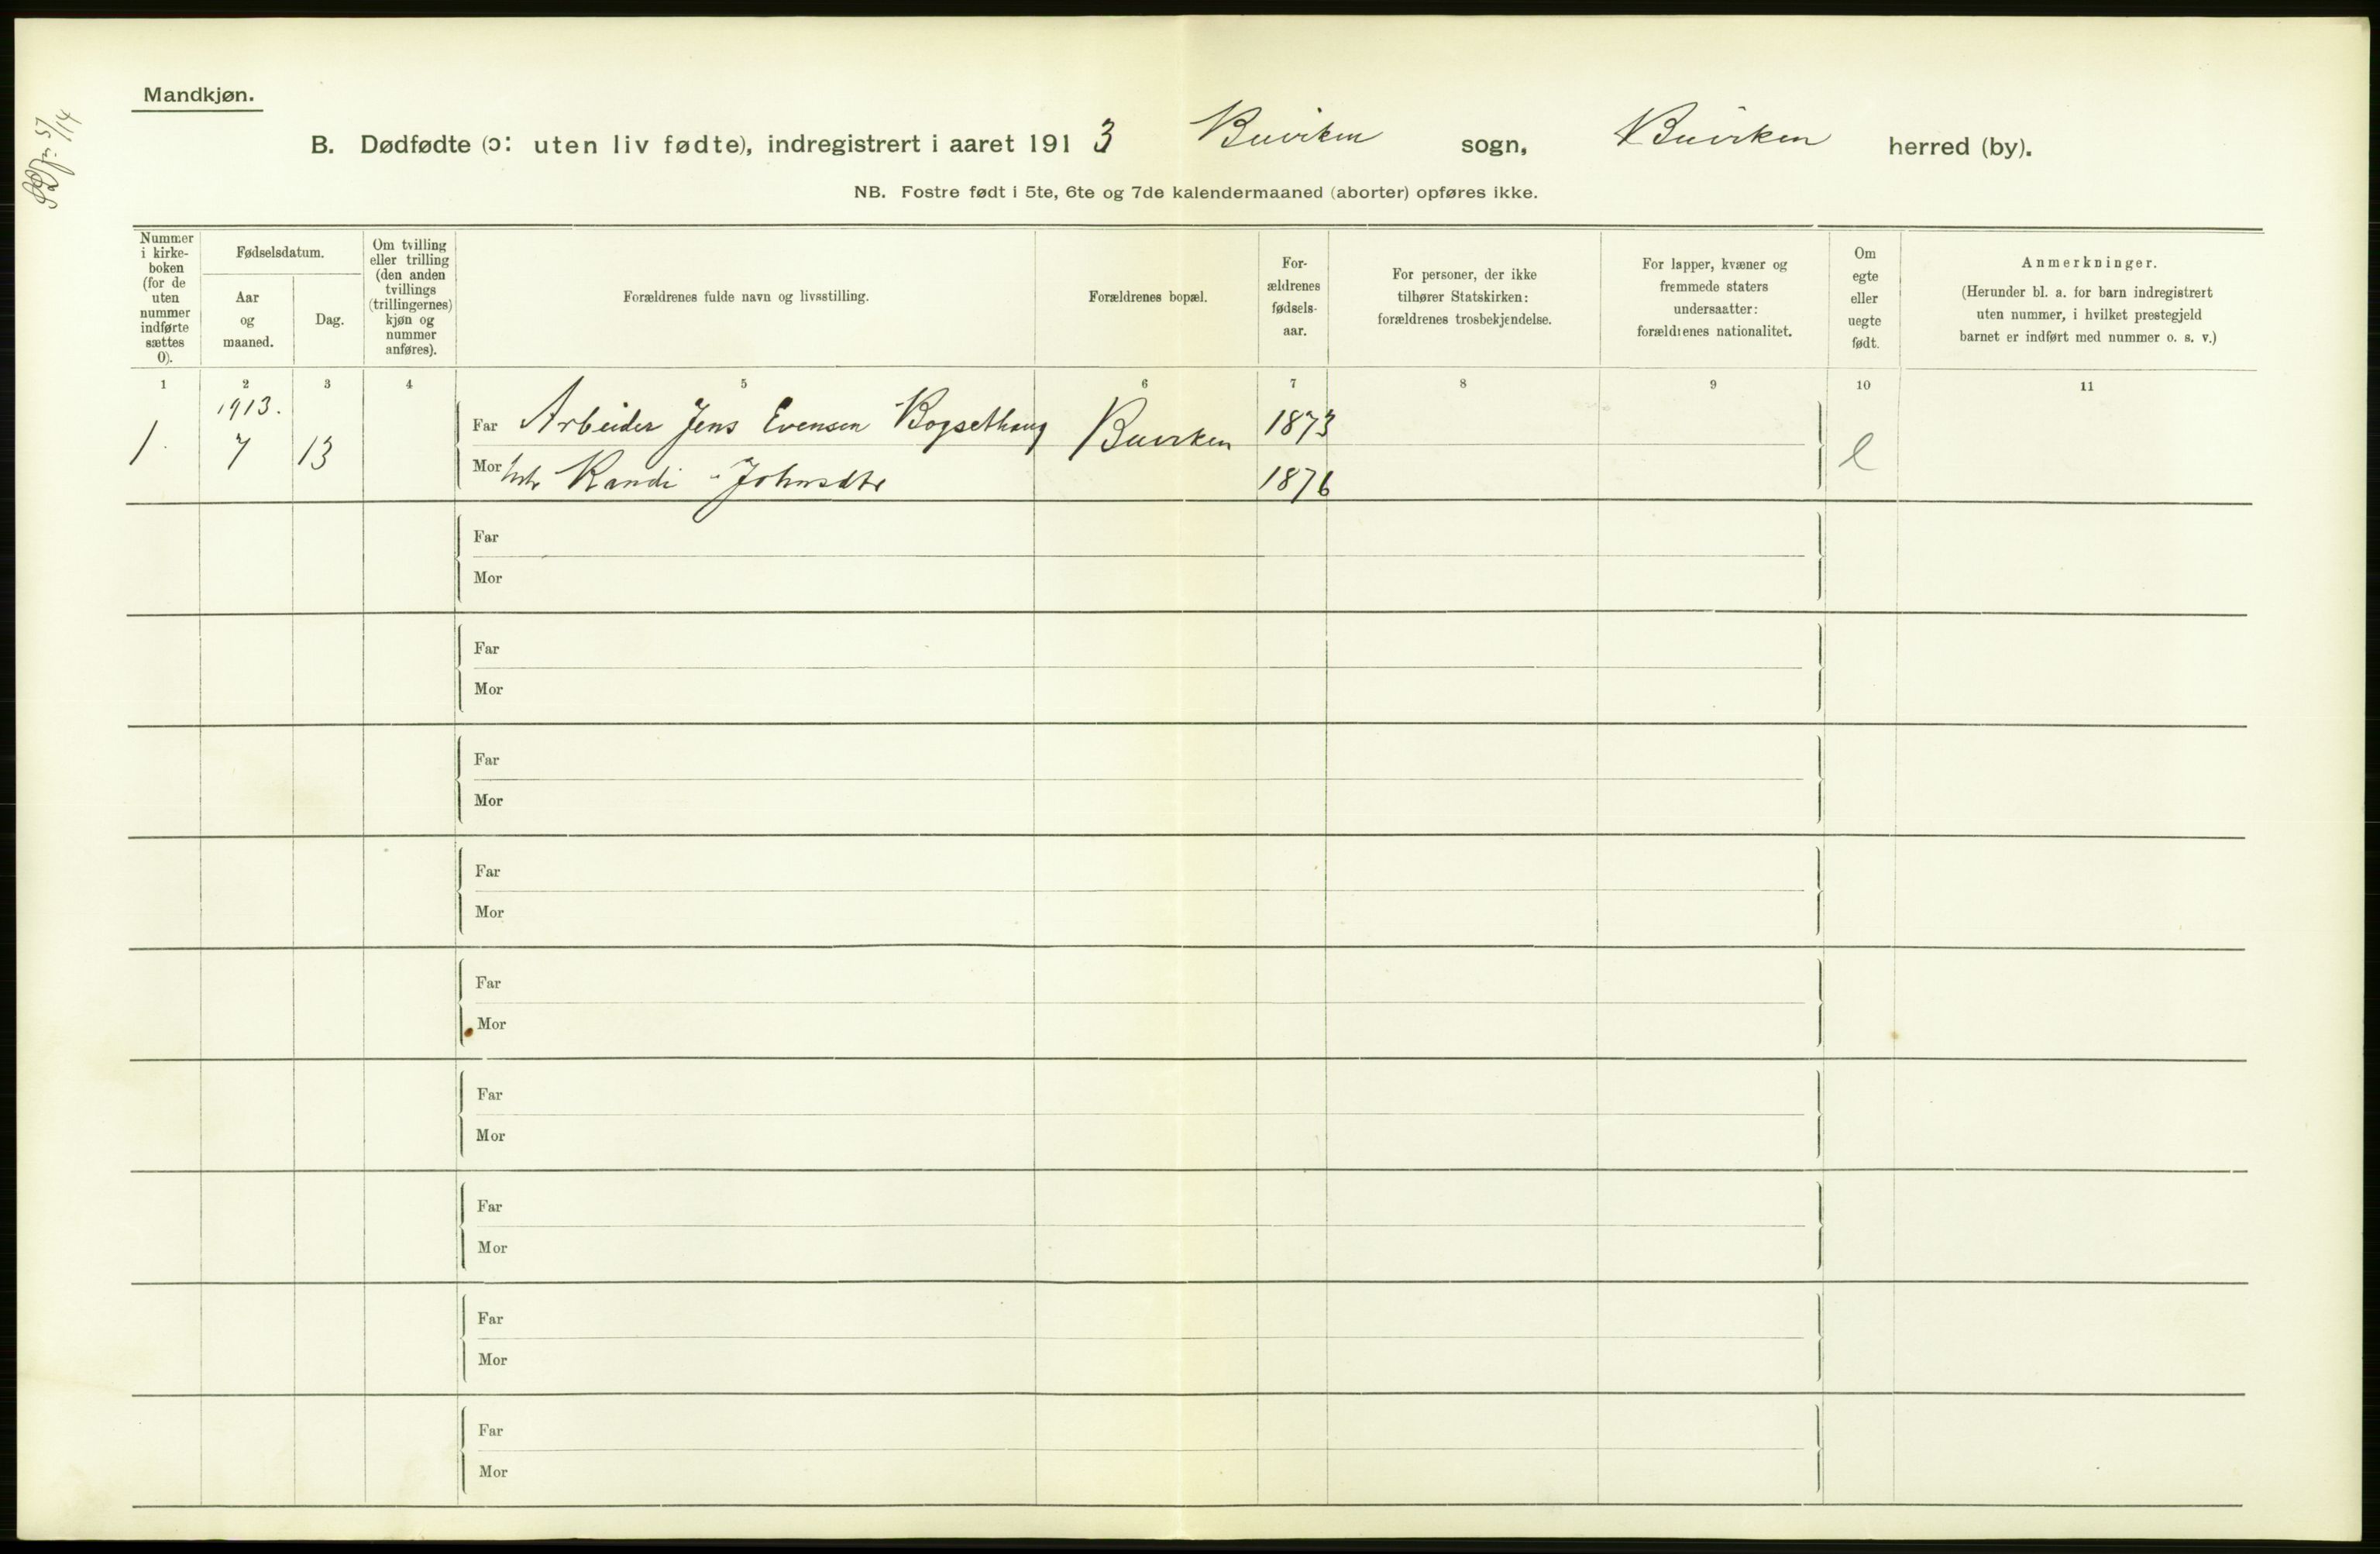 Mandkjøn.
B. Dødfødte (ɔ: uten liv fødte), indregistrert i aaret 1913 Buviken sogn, Buviken herred (by).
NB. Fostre født i 5te, 6te og 7de kalendermaaned (aborter) opføres ikke.
Nummer
i kirke-
boken
(for de
uten
nummer
indførte
sættes
0).
Fødselsdatum.
Aar
og
maaned.
Dag.
Om tvilling
eller trilling
(den anden
tvillings
(trillingernes)
kjøn og
nummer
anføres).
Forældrenes fulde navn og livsstilling.
Forældrenes bopæl.
For-
ældrenes
fødsels-
aar.
For personer, der ikke
tilhører Statskirken:
forældrenes trosbekjendelse.
For lapper, kvæner og
fremmede staters
undersaatter:
forældrenes nationalitet.
Om
egte
eller
uegte
født.
Anmerkninger.
(Herunder bl. a. for barn indregistrert
uten nummer, i hvilket prestegjeld
barnet er indført med nummer o. s. v.)
1 2 3 4 5 6 7 8 9 10 11
1913.
1. 7 13
Far Arbeider Jens Evensen Bogsethaug Buviken 1873
Mor Randi Johnsdtr 1876
e
Far
Mor
Far
Mor
Far
Mor
Far
Mor
Far
Mor
Far
Mor
Far
Mor
Far
Mor
Far
Mor